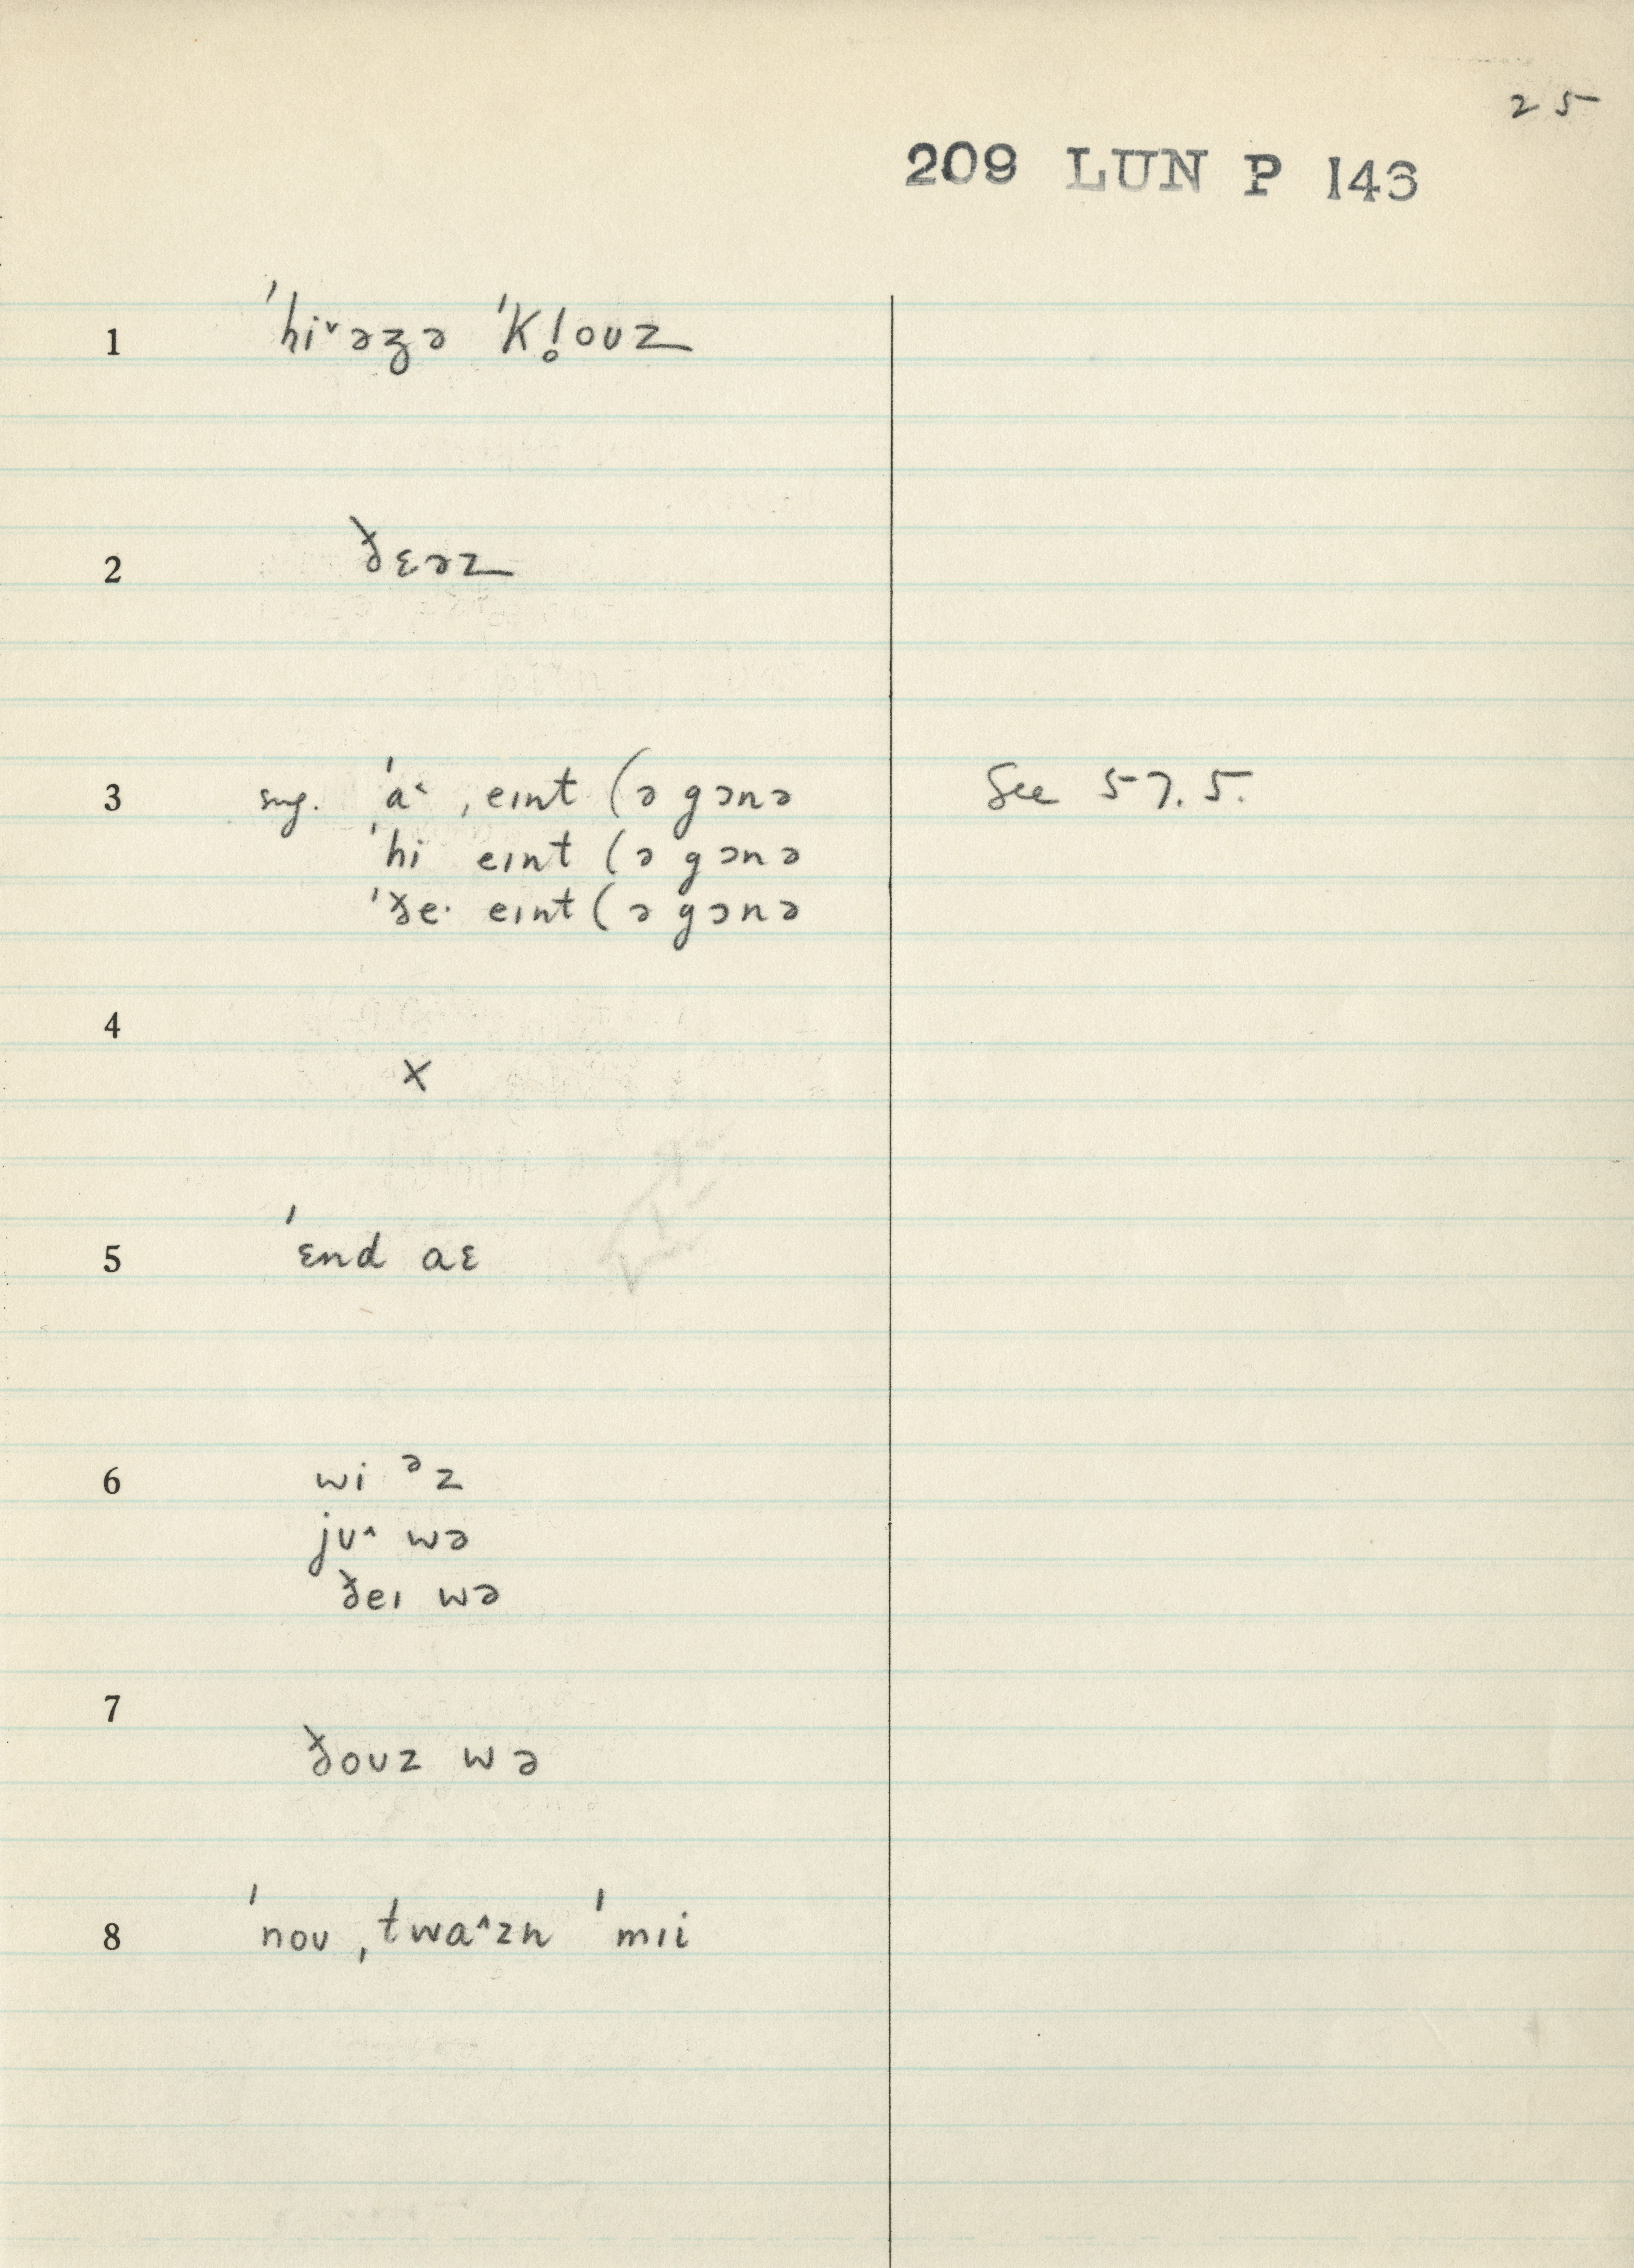 25
209 LUN P 143
1 ˈhi˅əʒə ˈKl̥ouz
2 ðɛəz
3 sug. ˈa˂ ˌeɪnt (ə gɔnə See 57.5.
ˈhi eɪnt (ə gɔnə
ˈðe· eɪnt (ə gɔnə
4
x
5 ˈɛnd aɛ
6 wi ᵊz
jʊ^ wə
ðeɪ wə
7
ðoʊz wə
8 ˈnoʊ ˌtwa^zn ˈmɪi